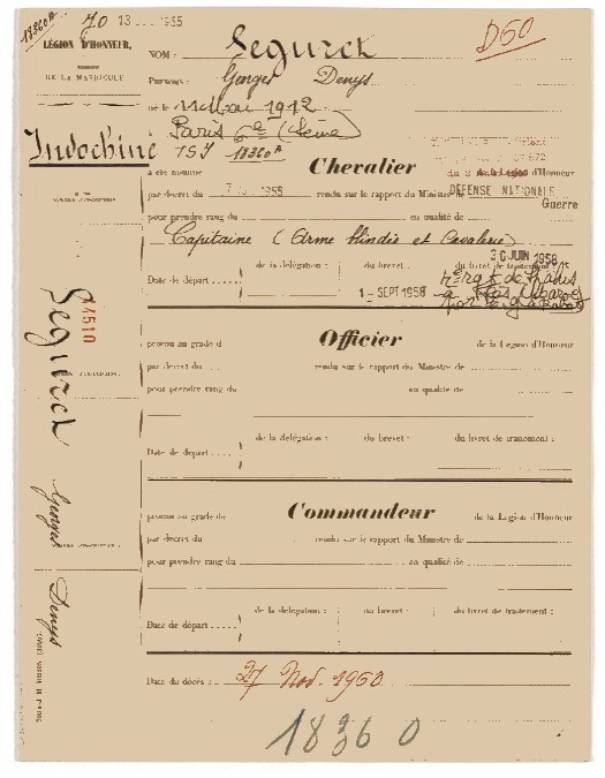 18360A 70 13 1955 D50
LÉGION D'HONNEUR,
DE LA MATRICULE
NOM : Segurel
Prénoms : Georges Denys
né le 11 Mai 1912
à Paris 6e (Seine)
Indochine
TSJ 18360A
a été nommé Chevalier de la Légion d'Honneur
par décret du 7 1955 rendu sur le rapport du Ministre DÉFENSE NATIONALE
Guerre
pour prendre rang du en qualité de
Capitaine (Arme blindée et Cavalerie)
30 JUIN 1958
de la délégation : du brevet : du livret de traitement :
Date de départ
1 - SEPT 1958
Segurel
41510
promu au grade d Officier de la Légion d'Honneur
par décret du rendu sur le rapport du Ministre de
pour prendre rang du en qualité de
de la délégation : du brevet : du livret de traitement :
Date de départ
Georges
promu au grade de Commandeur de la Légion d'Honneur
par décret du rendu sur le rapport du Ministre de
pour prendre rang du en qualité de
Denys
de la délégation : du brevet : du livret de traitement :
Date de départ
Date du décès : 27 Nov. 1960
18360